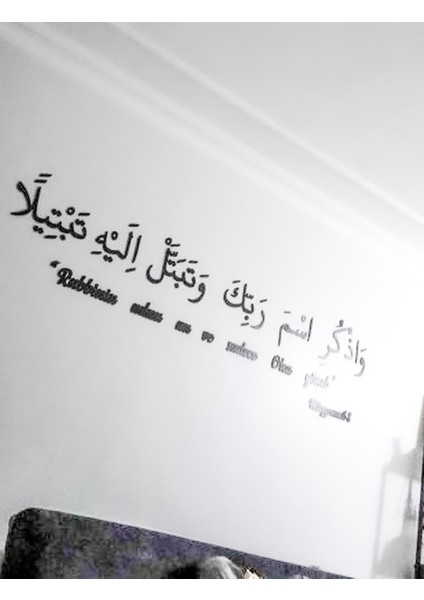 وَاذْكُرِ اسْمَ رَبِّكَ وَتَبَتَّلْ إِلَيْهِ تَبْتِيلًا
"Rabbinin adını an ve sadece O'na yönel"